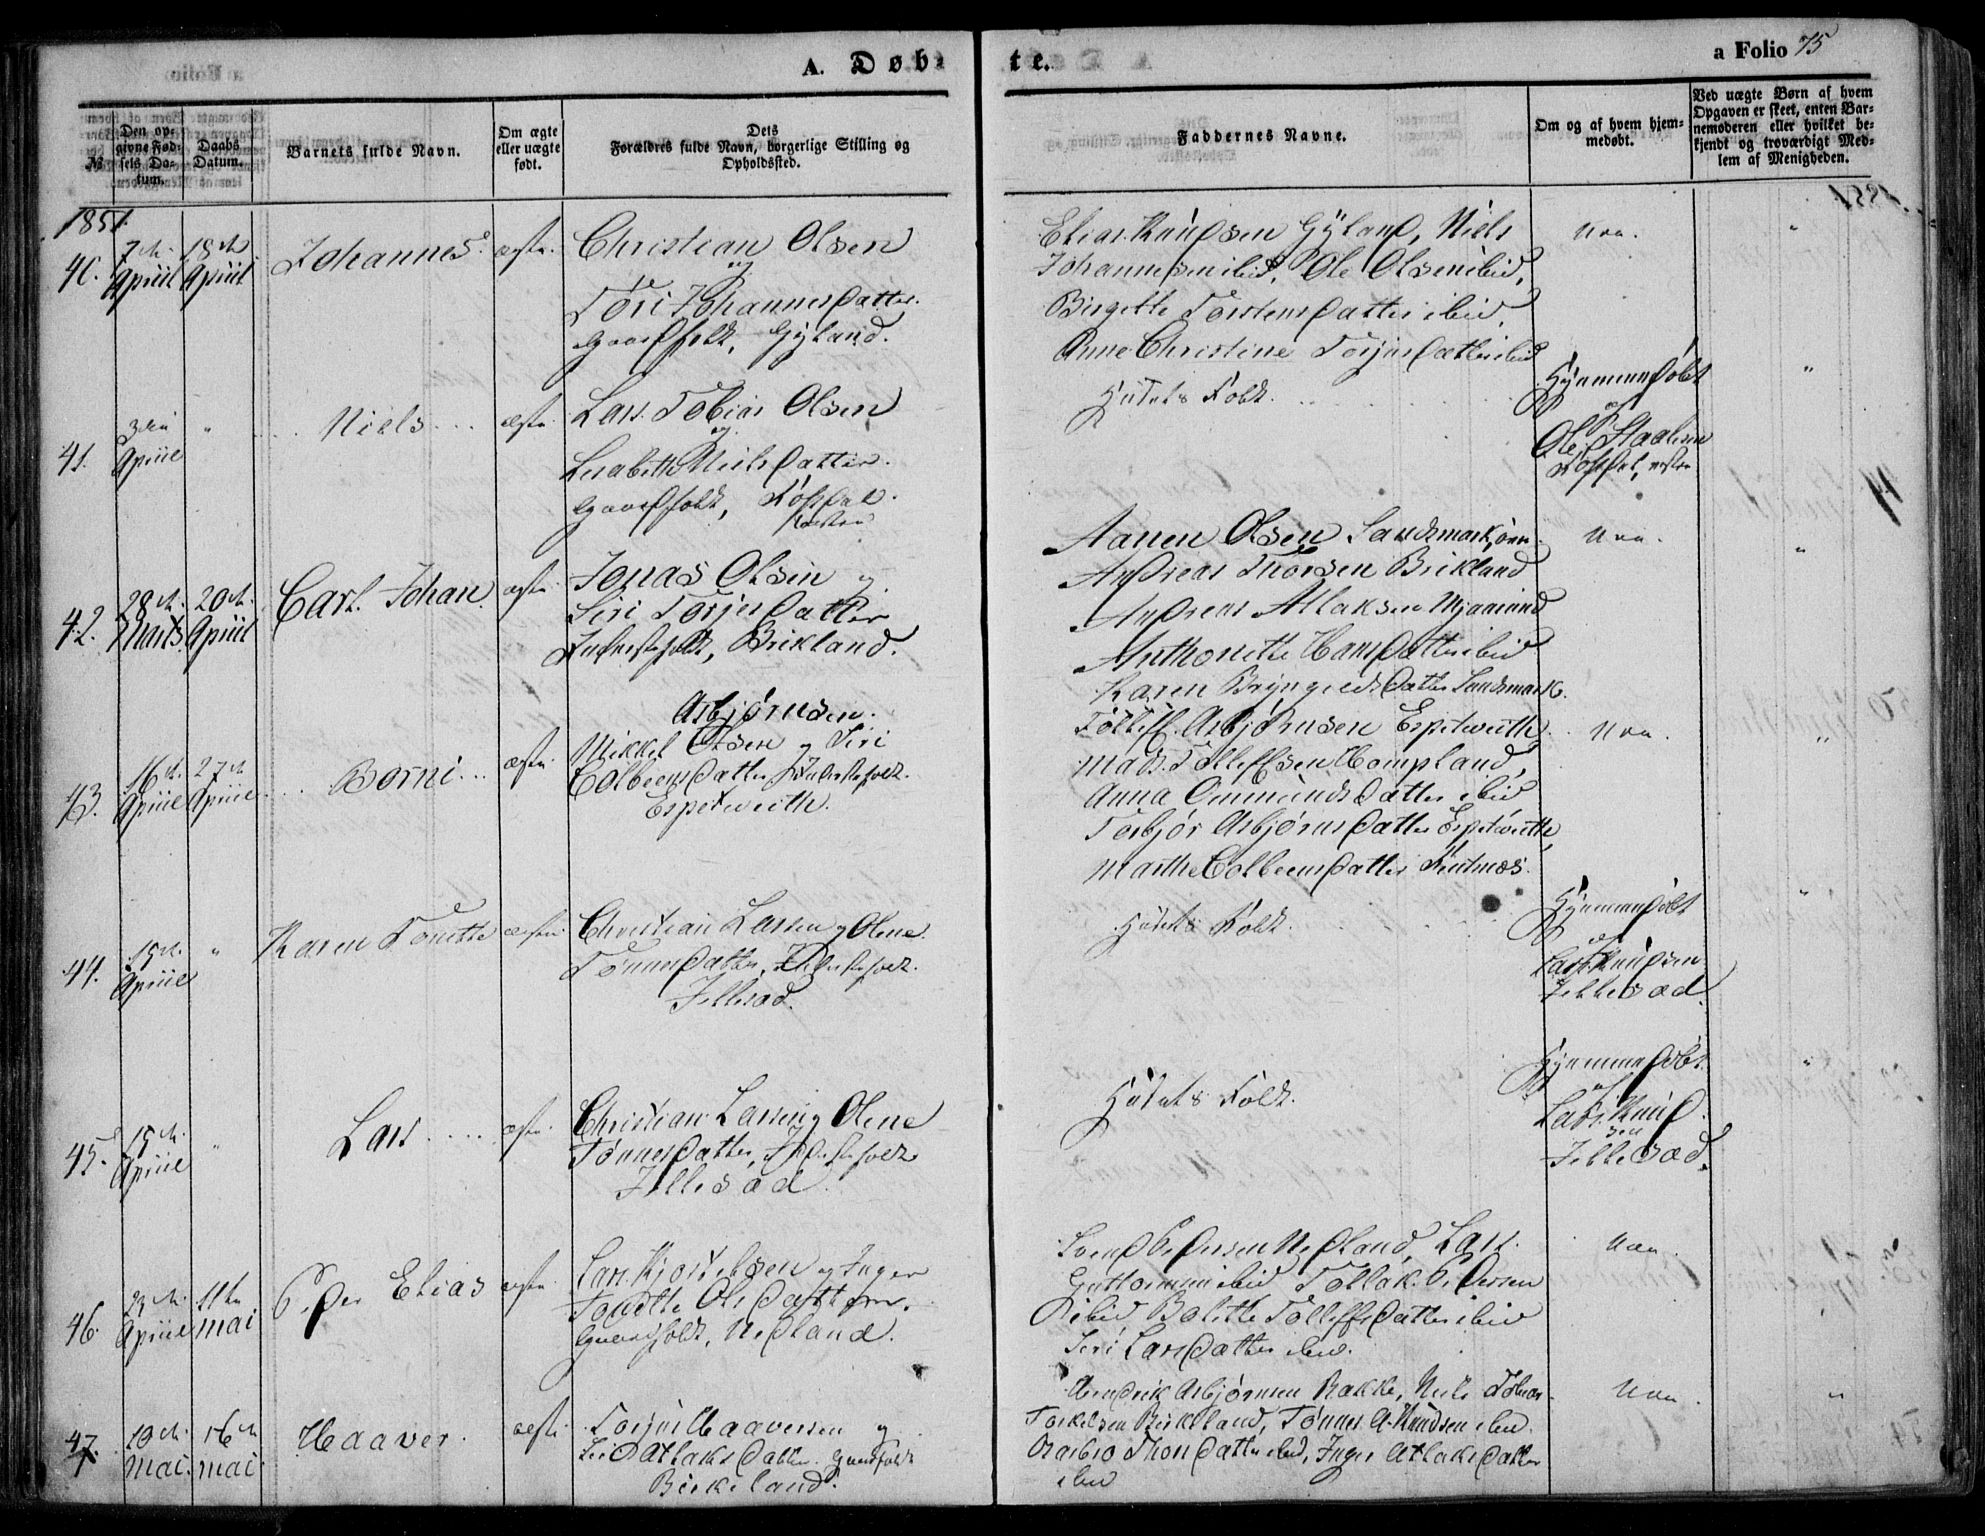 A. Døb
te.
a Folio 75
No.
Den op-
givne Fød-
sels Da-
tum.
Daabs
Datum.
Barnets fulde Navn.
Om ægte
eller uægte
født.
Dets
Forældres fulde Navn, borgerlige Stilling og
Opholdssted.
Faddernes Navne.
Om og af hvem hjem-
medøbt.
Ved uægte Børn af hvem
Opgaven er skeet, enten Bar-
nemoderen eller hvilket be-
kjendt og troværdigt Med-
lem af Menigheden.
1851.
40.
7de
April
18de
April
Johannes
ægte.
Christian Olsen
og
Tori Johannesdatter.
Gaardfolk, Gyland.
Elias Knudsen Gyland, Niels
Johannesen ibid, Ole Olsen ibid,
Birgitte Torstensdatter ibid,
Anne Christine Torjusdatter ibid
41.
3die
April
"
Niels
ægte.
Lars Tobias Olsen
og
Lisabeth Nielsdatter.
Gaardfolk,
Husets Folk.
Hjemmedøbt
af
Ole
42.
28de
Marts.
20de
April
Carl Johan.
ægte.
Jonas Olsen og
Siri Torjusdatter
Inderstefolk, Birkland.
Aanen Olsen Sandsmark,
Andreas Thorsen Birkland
Andreas Atlaksen
Anthonette Hansdatter ibid
Karen Bryngelsdatter Sandsmark.
43.
16de
April
27de
April
Borni
ægte.
Asbjørnsen.
Mikkel Olsen og Siri
Colbeensdatter Inderstefolk.
Espetveith.
Tolleff Asbjørnsen Espetveith.
Mads Tolleffsen Hompland,
Anna Ommundsdatter ibid
Torbjør Asbjørnsdatter Espetveith,
Marthe Colbeensdatter
44.
15de
April
"
Karen Tonette
ægte.
Christian Larsen og Olene
Tønnesdatter, Inderstefolk.
Jellesad.
Husets Folk.
Hjemmedøbt
af
Lars Knudsen
Jellesad.
45.
15de
April
"
Lars
ægte.
Christian Larsen og Olene
Tønnesdatter, Inderstefolk
Jellesad.
Husets Folk.
Hjemmedøbt.
af
Lars Knud
sen
Jellesad.
46.
23de
April
11te
Mai
Peder Elias
ægte.
Lars Kjostelsen og Inger
Tonette Olsdatter.
Gaardfolk, Nedland.
Svend Pedersen Nedland, Lars
Guttormsen ibid Tollak Pedersen
ibid Bolette Tolleffsdatter ibid
Siri Larsdatter ibid.
47.
10de
Mai.
16de
Mai
Haaver.
ægte.
Torjus Haaversen og
Siri Atlaksdatter. Gaardfolk
Birkeland.
Hendrik Asbjørnsen Bakke, Niels Tobias
Torkelsen Birkeland, Tønnes A. Knudsen ibid.
Thorsdatter ibid, Inger Atlaksdatter
ibid